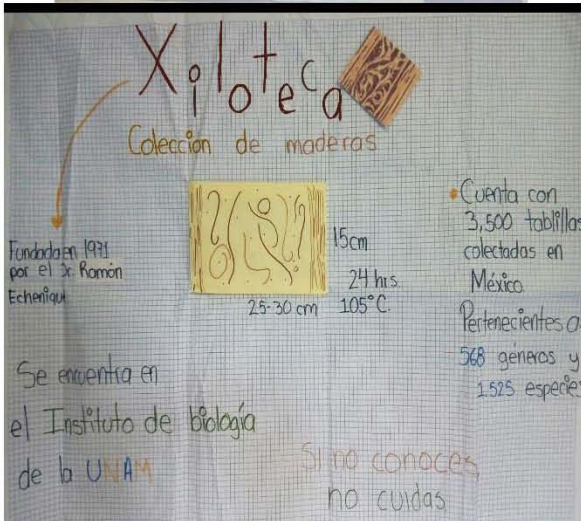 Xiloteca
Colección de maderas
Fundada en 1971
por el Dr. Ramón
Echeniqu
15cm
24 hrs
25-30 cm 105°C.
• Cuenta con
3,500 tablillas
colectadas en
México.
Pertenecientes a
568 géneros y
1.525 especies
Se encuentra en
el Instituto de biología
de la UNAM
Si no conoces,
no cuidas